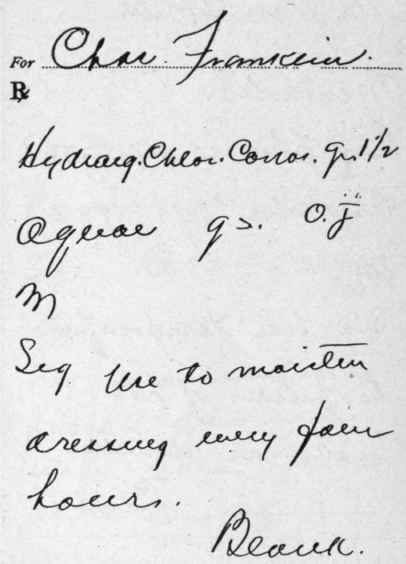 For Chas. Franklin.
℞
Hydrarg. Chlor. Corros. gr. 1 1/2
Aquae qs. O. ij
M
Sig. Use to moisten
dressing every four
hours.
Blank.